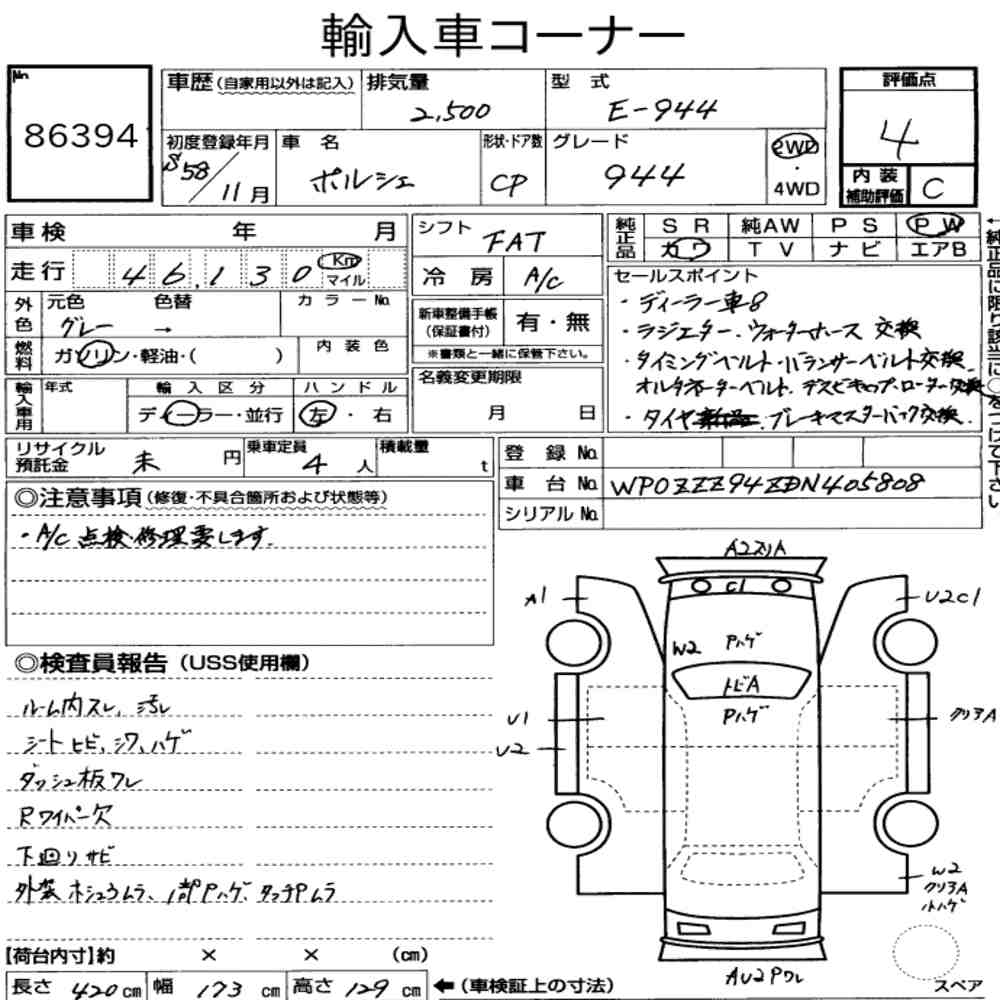 輸入車コーナー
No.
86394
車歴(自家用以外は記入)
排気量
2,500
型 式
E-944
評価点
4
初度登録年月
S58/11月
車 名
ポルシェ
形状・ドア数
CP
グレード
944
2WD
・
4WD
内 装
補助評価
C
車検 年 月
シフト
FAT
純正品
S R 純AW P S P W
カワ T V ナビ エアB
走行 46,130 Km
マイル
冷 房 A/c
セールスポイント
・ディーラー車8
・ラジエター・ウォーターホース 交換
・タイミングベルト・バランサーベルト交換
オルタネーターベルト、デスビキャップ・ローター交換
・タイヤ ブレーキマスターバック交換.
外色 元色 色替 カラーNo.
グレー →
新車整備手帳
(保証書付)
有・無
※書類と一緒に保管下さい。
燃料 ガソリン・軽油・( )
内 装 色
輸入車用
年式
輸 入 区 分
ディーラー・並行
ハ ン ド ル
左・右
名義変更期限
月 日
←純正品に限り該当に○をつけて下さい
リサイクル
預託金
未 円
乗車定員
4 人
積載量
t
登 録 No.
車 台 No. WP0ZZZ94ZDN405808
シリアル No.
◎注意事項(修復・不具合箇所および状態等)
・A/c 点検・修理要します.
◎検査員報告(USS使用欄)
ルーム内スレ、汚レ
シートヒビ、シワ、ハゲ
ダッシュ板ワレ
Rワイパー欠
下廻りサビ
外装ホシュウムラ、1部Pハゲ、タッチPムラ
A2スリA
C1
A1
U2C1
W2
Pハゲ
トビA
Pハゲ
U1
U2
クリアA
W2
クリアA
小ハゲ
AU2Pワレ
スペア
【荷台内寸】約 × × (cm)
長さ 420 cm
幅 173 cm
高さ 129 cm
←(車検証上の寸法)